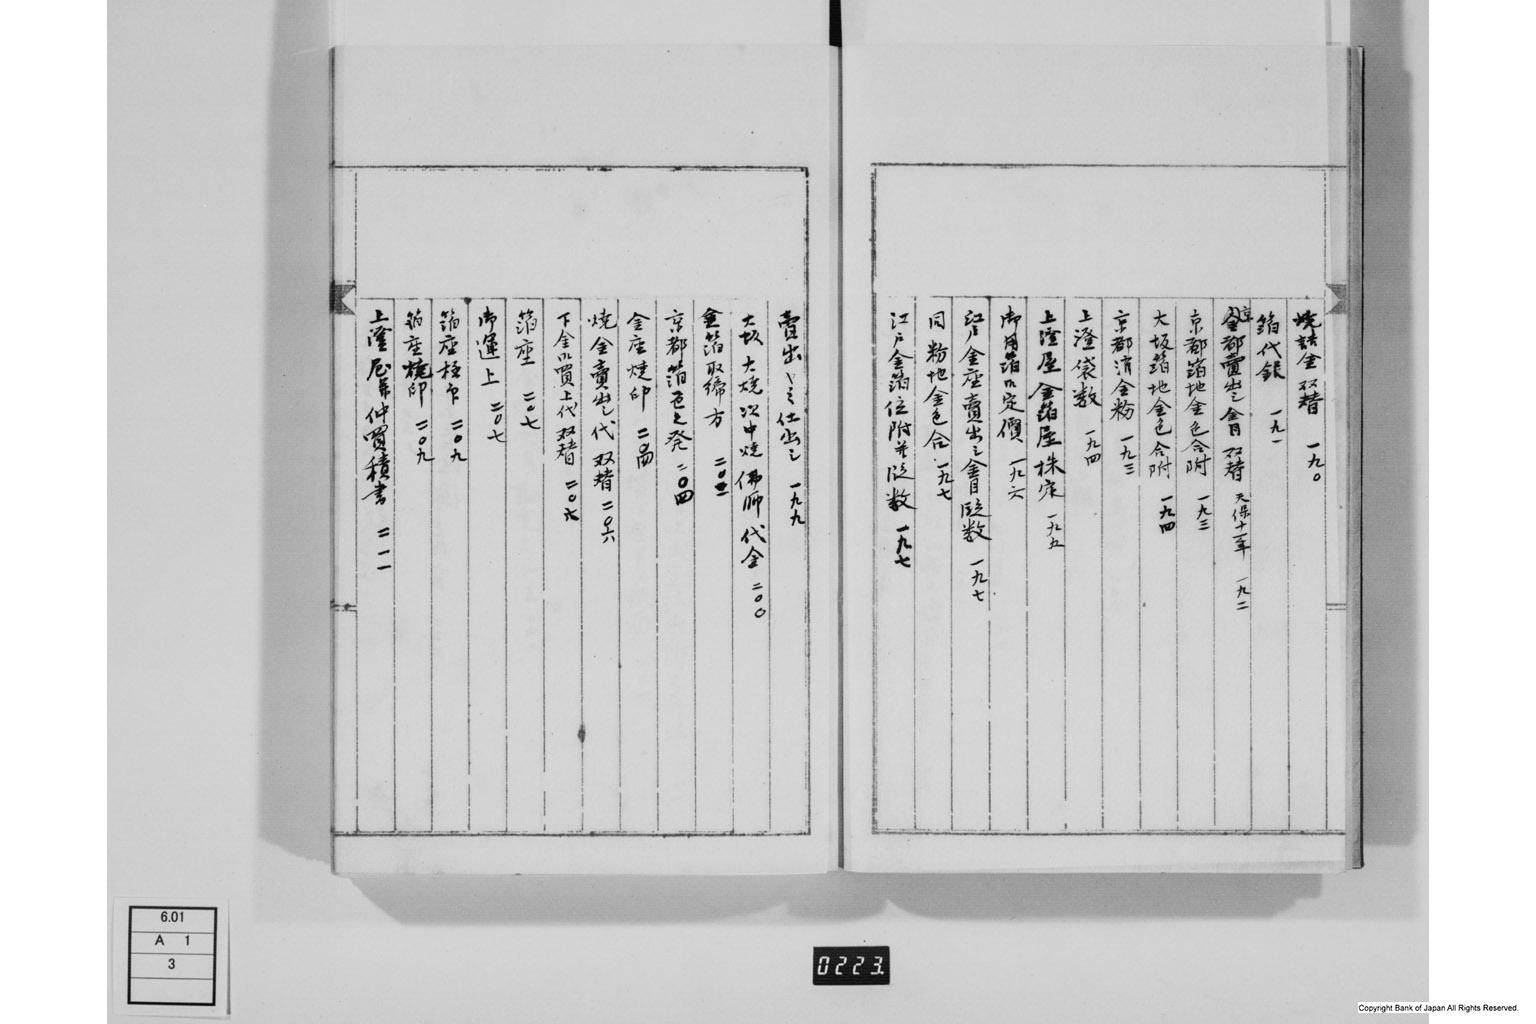 焼詰金双替 一九〇
箔代銀 一九一
京都賣出之金目双替 天保十一年 一九二
京都箔地金色合附 一九三
大坂箔地金色合附 一九四
京都消金粉 一九三
上澄袋数 一九四
上澄屋金箔屋株定 一九五
御用箔御定價 一九六
江戸金座賣出之金目段数 一九七
同粉地金色合 一九七
江戸金箔位附并段数 一九七
賣出し之仕出之 一九九
大坂大焼次中焼佛師代金 二〇〇
金箔取締方
京都箔色之発 二〇四
金座焼印 二〇四
焼金賣出し代双替 二〇六
下金御買上代双替 二〇六
箔座 二〇七
御運上 二〇七
箔座極印 二〇九
箔座焼印 二〇九
上澄屋并仲買積書 二一一
6.01
A 1
3
0223.
Copyright Bank of Japan All Rights Reserved.